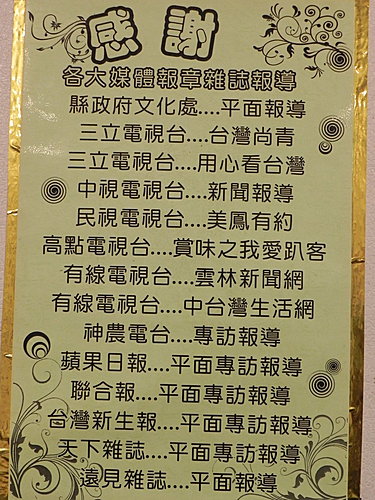 感謝
各大媒體報章雜誌報導
縣政府文化處....平面報導
三立電視台....台灣尚青
三立電視台....用心看台灣
中視電視台....新聞報導
民視電視台....美鳳有約
高點電視台....賞味之我愛趴客
有線電視台....雲林新聞網
有線電視台....中台灣生活網
神農電台....專訪報導
蘋果日報....平面專訪報導
聯合報....平面專訪報導
台灣新生報....平面專訪報導
天下雜誌....平面專訪報導
遠見雜誌....平面報導